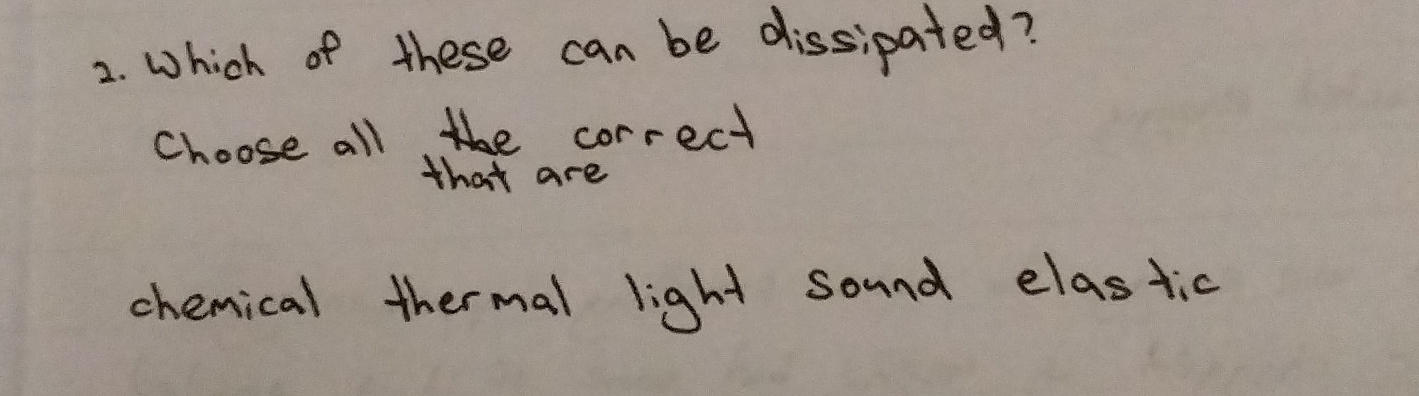 2. Which of these can be dissipated?
Choose all the correct
that are
chemical thermal light sound elastic